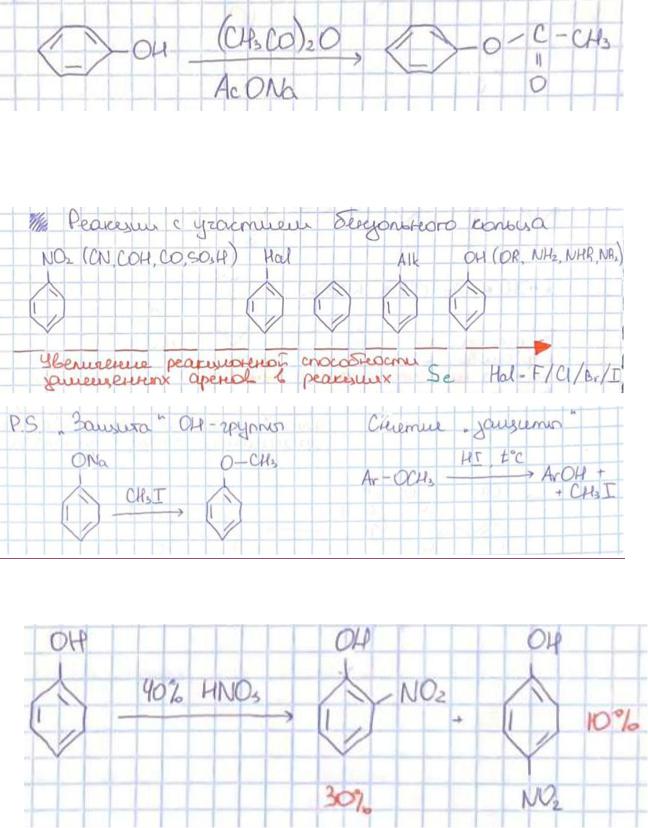 OH (CH₃CO)₂O O – C – CH₃
AcONa O
Реакции с участием бензольного кольца
NO₂ (CN, COH, CO, SO₃H) Hal Alk OH (OR, NH₂, NHR, NR₂)
Увеличение реакционной способности
замещенных аренов в реакциях Se Hal - F/Cl/Br/I
P.S. „Защита“ OH-группы Снятие „защиты“
ONa O–CH₃
CH₃I
Ar–OCH₃ HI, t°C ArOH +
+ CH₃I
OH OH OH
40% HNO₃ NO₂ + 10%
30% NO₂